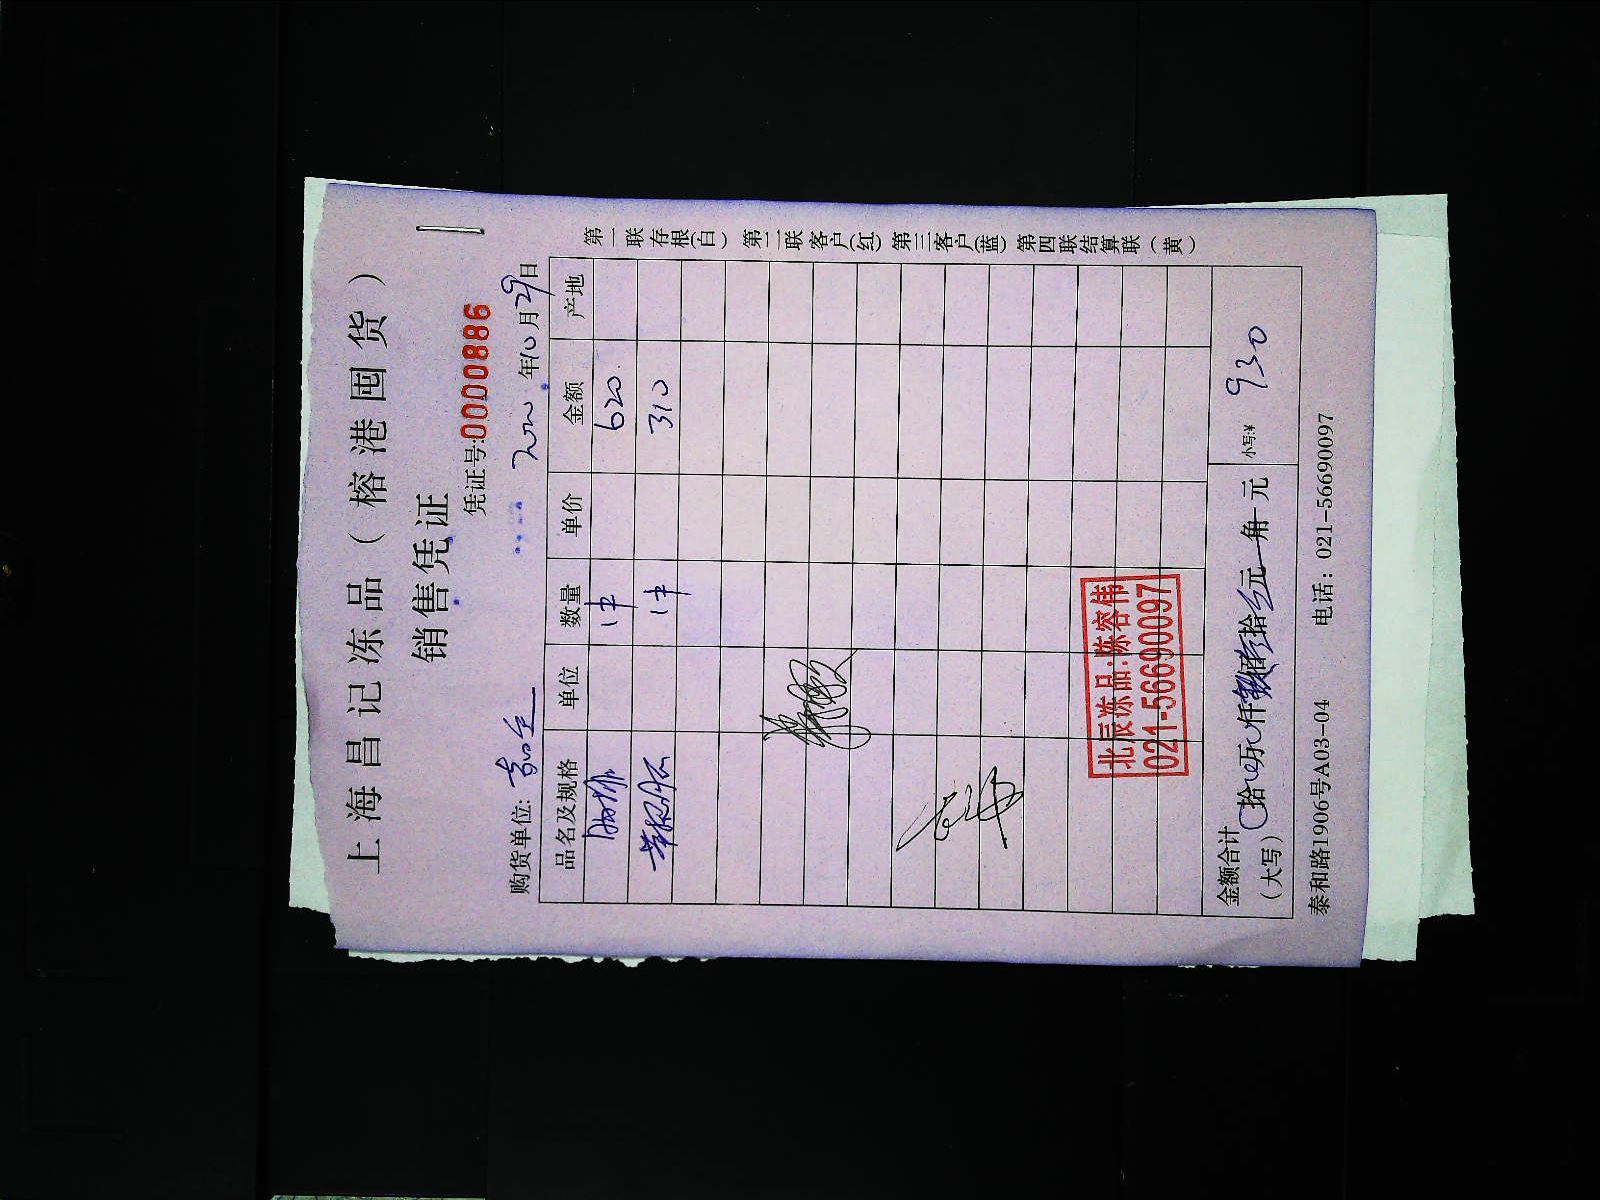 上海昌记冻品（榕港囤货）
销售凭证
凭证号:0000886
购货单位: 2020年10月29日
品名及规格 单位 数量 单价 金额 产地
1件 620
1件 310
北辰冻品:陈容伟
021-56690097
金额合计（大写） 拾 万 仟 佰 拾 元 角 元 小写:¥ 930
泰和路1906号A03-04 电话：021-56690097
第一联存根（白） 第二联客户（红） 第三客户（蓝） 第四联结算联（黄）